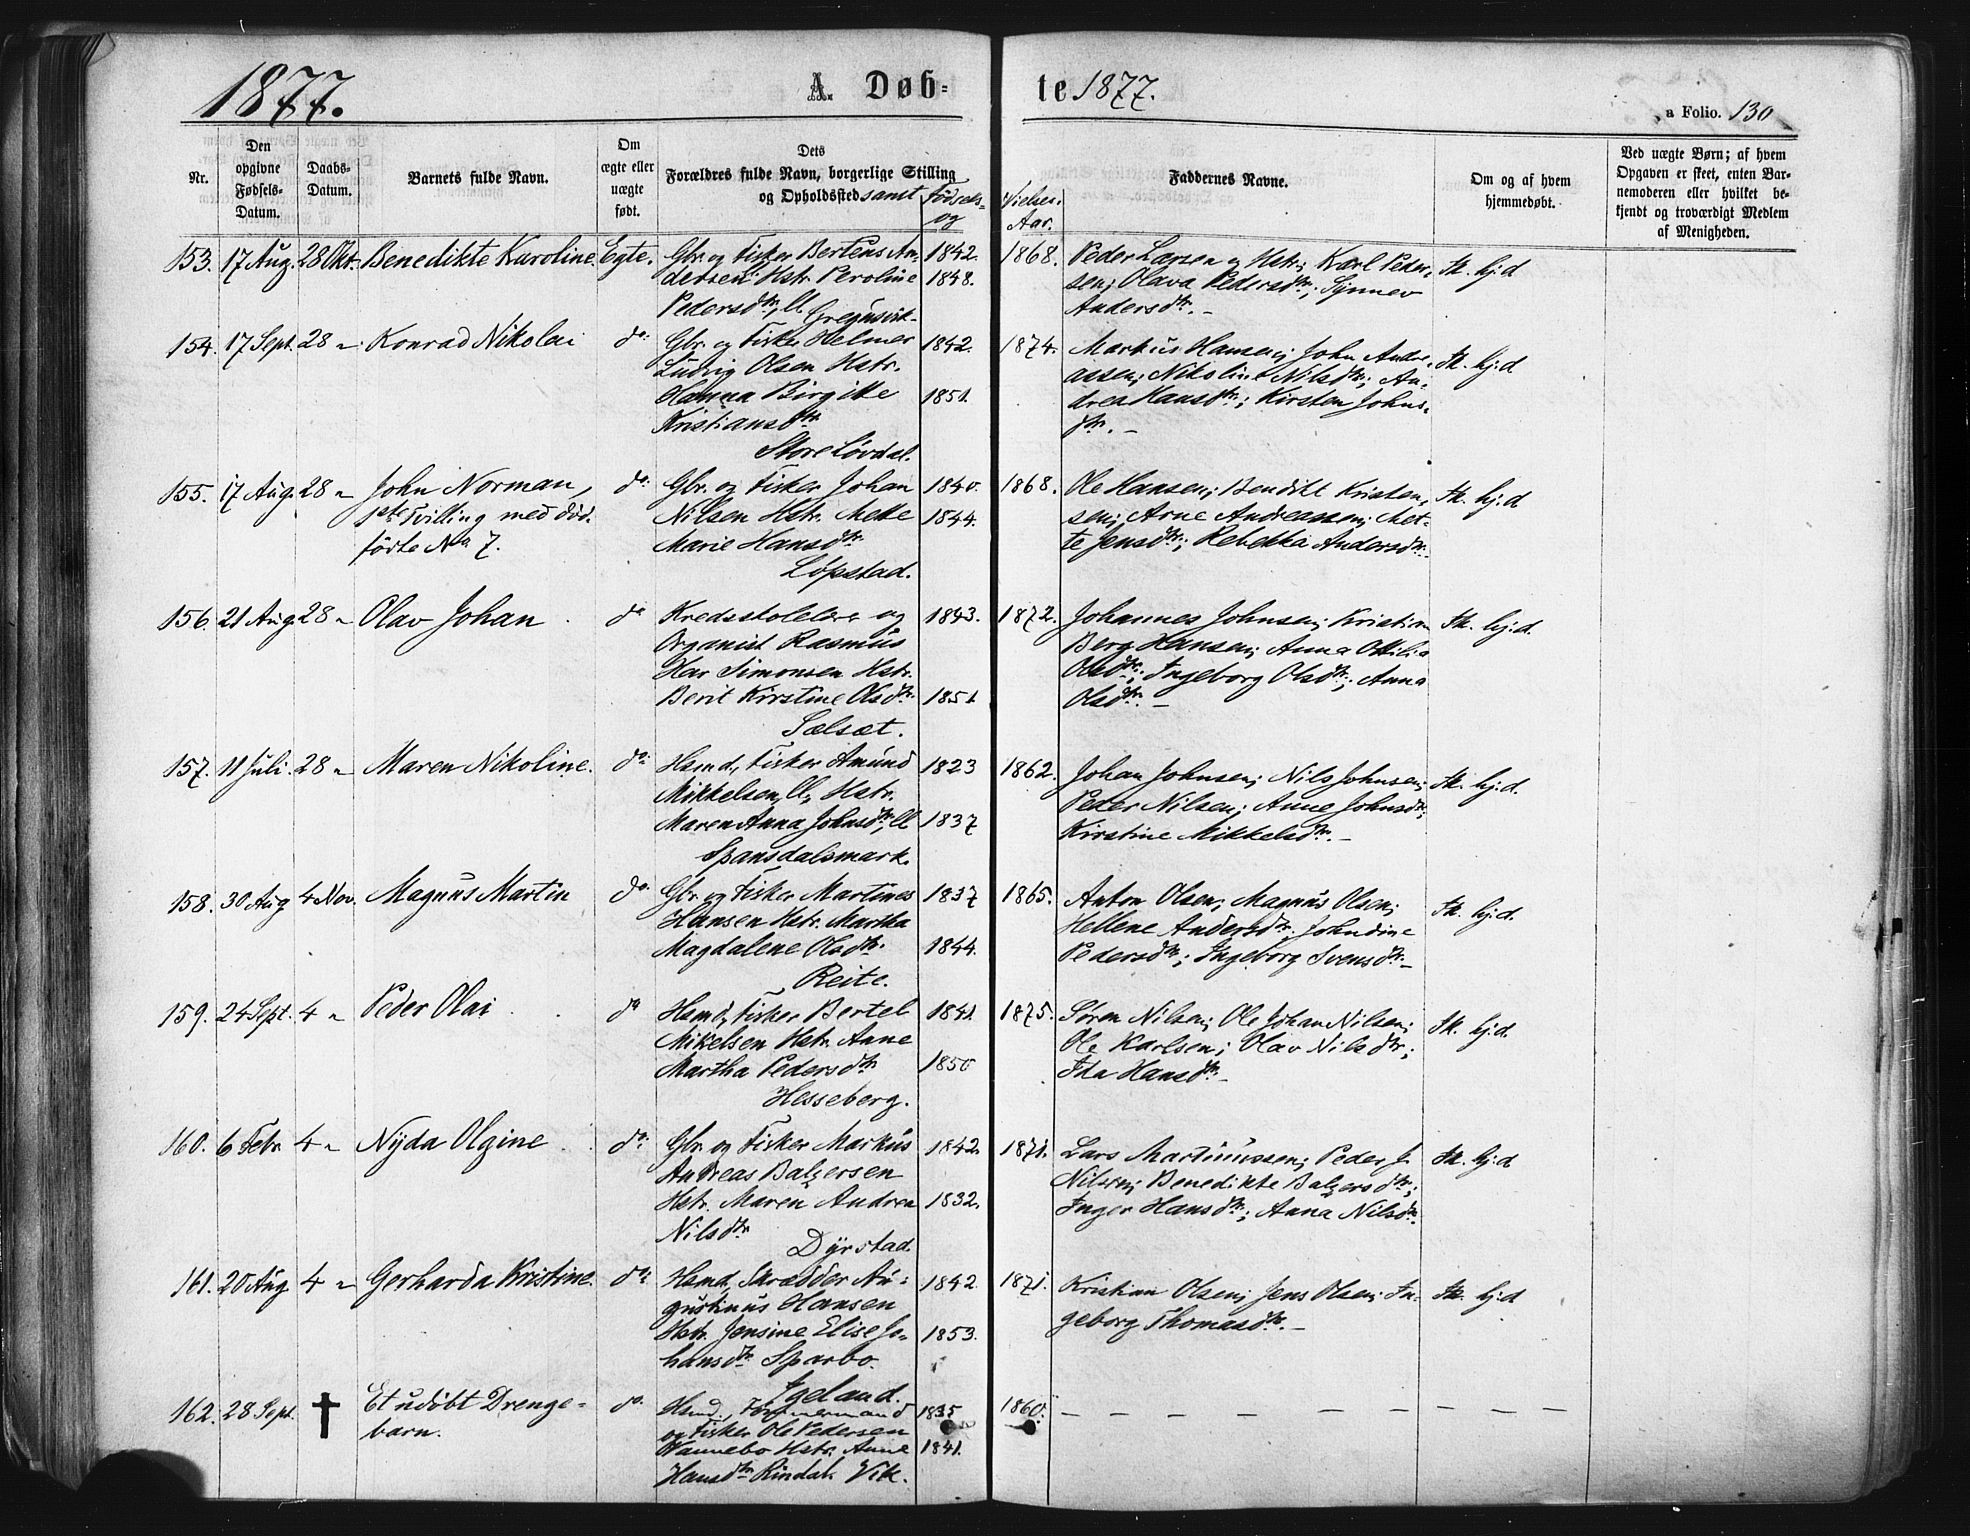 1877.
A. Døb-
te 1877.
a Folio. 130
Nr.
Den
opgivne
Fødsels-
Datum.
Daabs-
Datum.
Barnets fulde Navn.
Om
ægte eller
uægte
født.
Dets
Forældres fulde Navn, borgerlige Stilling
og Opholdssted samt
Fødsels-
og
Vielses-
Aar.
Faddernes Navne.
Om og af hvem
hjemmedøbt.
Ved uægte Børn; af hvem
Opgaven er skeet, enten Bar-
nemoderen eller hvilket be-
kjendt og troværdigt Medlem
af Menigheden.
153. 17 Aug. 28 Okt. Benedikte Karoline. Egte.
Gbr. og Fisker Bertëus An-
dersen Hstr. Peroline
Pedersdtr, ll.
Grøgnsvik
1842.
1848.
1868.
Peder Larsen og Hstr; Karl Peder-
sen; Olava Pedersdtr; Synnev
Andersdtr. -
St. hj:d
154. 17 Sept. 28 " Konrad Nikolai do
Gbr. og Fisker Helmer
Ludvig Olsen Hstr.
Hanna Birgitte
Kristiansdtr
Store Løvdal.
1842.
1851.
1874.
Markus Hansen; John Andre-
assen; Nikoline Nilsdtr; An-
drea Hansdtr; Kirsten Johns-
dtr. -
St. hj:d
155. 17 Aug. 28 " John Norman,
1ste Tvilling med død-
førte No 7.
do
Gbr. og Fisker Johan
Nilsen Hstr. Mette
Marie Hansdtr
Løpstad.
1840.
1844.
1868.
Ole Hansen; Bendikt Kristen-
sen; Arne Andreassen; Met-
te Jensdtr; Rebekka Andersdtr.
St. hj:d
156. 21 Aug. 28 " Olav Johan do
Kredsskolelære og
Organist Rasmus
Har Simonsen Hstr.
Berit Kirstine Olsdtr.
Sælsæt.
1843.
1851
1872.
Johannes Johnsen; Kristian
Berg Hansen; Anna Ottilia
Olsdtr; Ingeborg Olsdtr; Anna
Olsdtr. -
St. hj:d.
157. 11 Juli. 28 " Maren Nikoline. do
Hsmd, Fisker Amund
Mikkelsen, ll, Hstr.
Maren Anna Johnsdtr, ll
Spansdalsmark.
1823
1837
1862.
Johan Johnsen; Nils Johnsen;
Peder Nilsen; Anne Johnsdtr;
Kirstine Mikkelsdtr. -
St. hj:d.
158. 30 Aug 4 Nov. Magnus Martin do
Gbr. og Fisker Martines
Hansen Hstr. Martha
Magdalene Olsdtr.
Reite.
1837
1844.
1865.
Anton Olsen; Magnus Olsen;
Hellene Andersdtr; Johndine
Pedersdtr; Ingeborg Svensdtr -
St. hj:d.
159. 24 Sept. 4 " Peder Olai do
Hsmd, Fisker Bertel
Mikelsen Hstr. Anne
Martha Pedersdtr
Hesseberg.
1841.
1850
1875.
Søren Nilsen; Ole Johan Nilsen;
Ole Karlsen; Olav Nilsdtr;
Ida Hansdtr -
St. hj:d.
160. 6 Febr. 4 " Nyda Olgine do
Gbr. og Fisker Markus
Andreas Balzersen
Hstr. Maren Andrea
Nilsdtr
Dyrstad.
1842.
1832.
1871.
Lars Martinussen; Peder J.
Nilsen; Benedikte Balzersdtr;
Inger Hansdtr; Anna Nilsdtr.
St. hj:d
161. 20 Aug 4 " Gerharda Kristine. do
Hsmd, Skrædder Au-
gustinus Hansen
Hstr. Jensine Elise Jo-
hansdtr Sparbo.
Igeland.
1842.
1853.
1871.
Kristian Olsen; Jens Olsen; In-
geborg Thomasdtr. -
St. hj:d
162. 28 Sept. † Et udøbt Drenge-
barn.
do
Hsmd, Tømmermand
og Fisker Ole Pedersen
Vannebo Hstr. Anne
Hansdtr Rindal. Vik.
1835
1841.
1860.
— — — — — — — — —